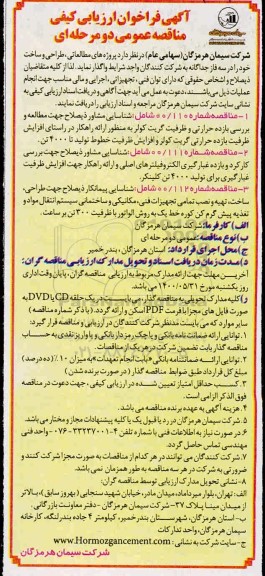 آگهی فراخوان ارزیابی کیفی
مناقصه عمومی دو مرحله ای
شرکت سیمان هرمزگان (سهامی عام) در نظر دارد پروژه های مطالعاتی، طراحی و ساخت
خود را در سه فاز جداگانه به شرکت کنندگان واجد شرایط واگذار نماید. لذا از کلیه متقاضیان
ذیصلاح و اشخاص حقوقی که دارای توان فنی، تجهیزاتی، اجرایی و مالی مناسب جهت انجام
عملیات ذیل می باشند، دعوت به عمل می آید جهت آگاهی و دریافت اسناد ارزیابی کیفی به
نشانی سایت شرکت سیمان هرمزگان مراجعه و اسناد ارزیابی را دریافت نمایند.
1-مناقصه شماره 00/110 شامل: شناسایی مشاور ذیصلاح جهت مطالعه و
بررسی بازده حرارتی و ظرفیت گریت کولر به منظور ارائه راهکار در راستای افزایش
ظرفیت بازده حرارتی گریت کولر و افزایش ظرفیت خطوط تولید تا 4000 تن.
2-مناقصه شماره 00/111 شامل: شناسایی مشاور ذیصلاح جهت بررسی
کارکرد و بازده غبارگیری الکتروفیلترهای اصلی و ارائه راهکار جهت افزایش ظرفیت
غبارگیری برای تولید 4000 تن کلینکر.
3-مناقصه شماره 00/112 شامل: شناسایی پیمانکار ذیصلاح جهت طراحی،
ساخت، تهیه و نصب تمامی تجهیزات فنی، مکانیکی و ساختمانی سیستم انتقال مواد و
تغذیه پیش گرم کن کوره خط یک به روش الواتور با ظرفیت 300 تن بر ساعت.
الف) کارفرما: شرکت سیمان هرمزگان
ب) نوع مناقصه: عمومی دو مرحله ای
ج) محل اجرای قرارداد: استان هرمزگان، بندر خمیر
د) مدت زمان دریافت اسناد و تحویل مدارک ارزیابی مناقصه گران:
آخرین مهلت جهت ارائه مدارک مربوط به ارزیابی مناقصه گران، پایان وقت اداری
روز یکشنبه مورخ 1400/05/31 می باشد.
ر) کلیه مدارک تحویلی به مناقصه گذار، می بایست در یک حلقه CD یا DVD به
صورت فایل های مجزا با فرمت PDF اسکن و ارائه گردد. (با ذکر شماره مناقصه)
سایر موارد که می بایست مدنظر شرکت کنندگان در ارزیابی و مناقصه قرار گیرد:
1. توانایی ارائه ضمانت نامه بانکی و یا چک رمزدار بانکی و یا واریز نقدی به حساب
مناقصه گذار بابت تضمین شرکت در هر یک از مناقصات.
2. توانایی ارائه ضمانتنامه بانکی «بابت انجام تعهدات» به میزان 10٪ (ده درصد)
مبلغ کل قرارداد طبق ضوابط مناقصه گذار (در صورت برنده شدن)
3. کسب حداقل امتیاز تعیین شده در ارزیابی کیفی، جهت دعوت در مناقصه
فوق الذکر الزامی است.
4. هزینه آگهی به عهده برنده مناقصه می باشد.
5. شرکت سیمان هرمزگان در رد یا قبول یک یا کلیه پیشنهادات مجاز و مختار می باشد.
6. در صورت نیاز به اطلاعات فنی با شماره تلفن 4-33237001-076 واحد فنی
مهندسی تماس حاصل گردد.
7. شرکت کنندگان می توانند در هر کدام از مناقصات به صورت مجزا شرکت کنند و
ضرورتی به شرکت در هر سه مناقصه به طور همزمان نمی باشد.
8- نشانی تحویل مدارک ارزیابی توسط مناقصه گران:
الف- تهران، بلوار میرداماد، میدان مادر، خیابان شهید سنجابی (بهروز سابق)، بالاتر
از میدان مینا پلاک 37-شرکت سیمان هرمزگان -دفتر معاونت بازرگانی.
ب- استان هرمزگان، شهرستان بندر خمیر، کیلومتر 4 جاده بندر لنگه، کارخانه
سیمان هرمزگان، واحد تدارکات
ج- سایت شرکت به نشانی: www.Hormozgancement.com
شرکت سیمان هرمزگان